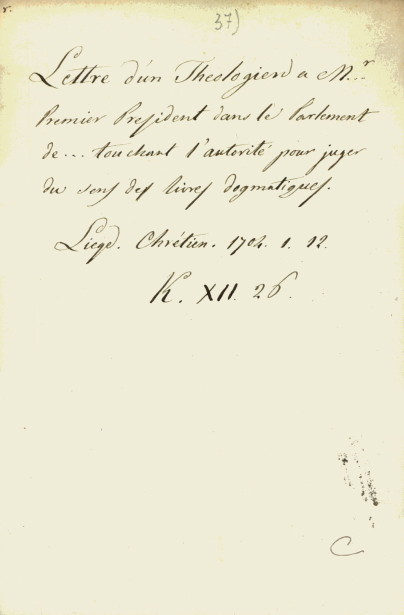 r.
37)
Lettre d'un Theologien a Mr...
Premier President dans le Parlement
de... touchant l'autorité pour juger
du sens des livres dogmatiques.
Liege. Chrétien. 1704. 1. 12.
K. XII. 26.
C